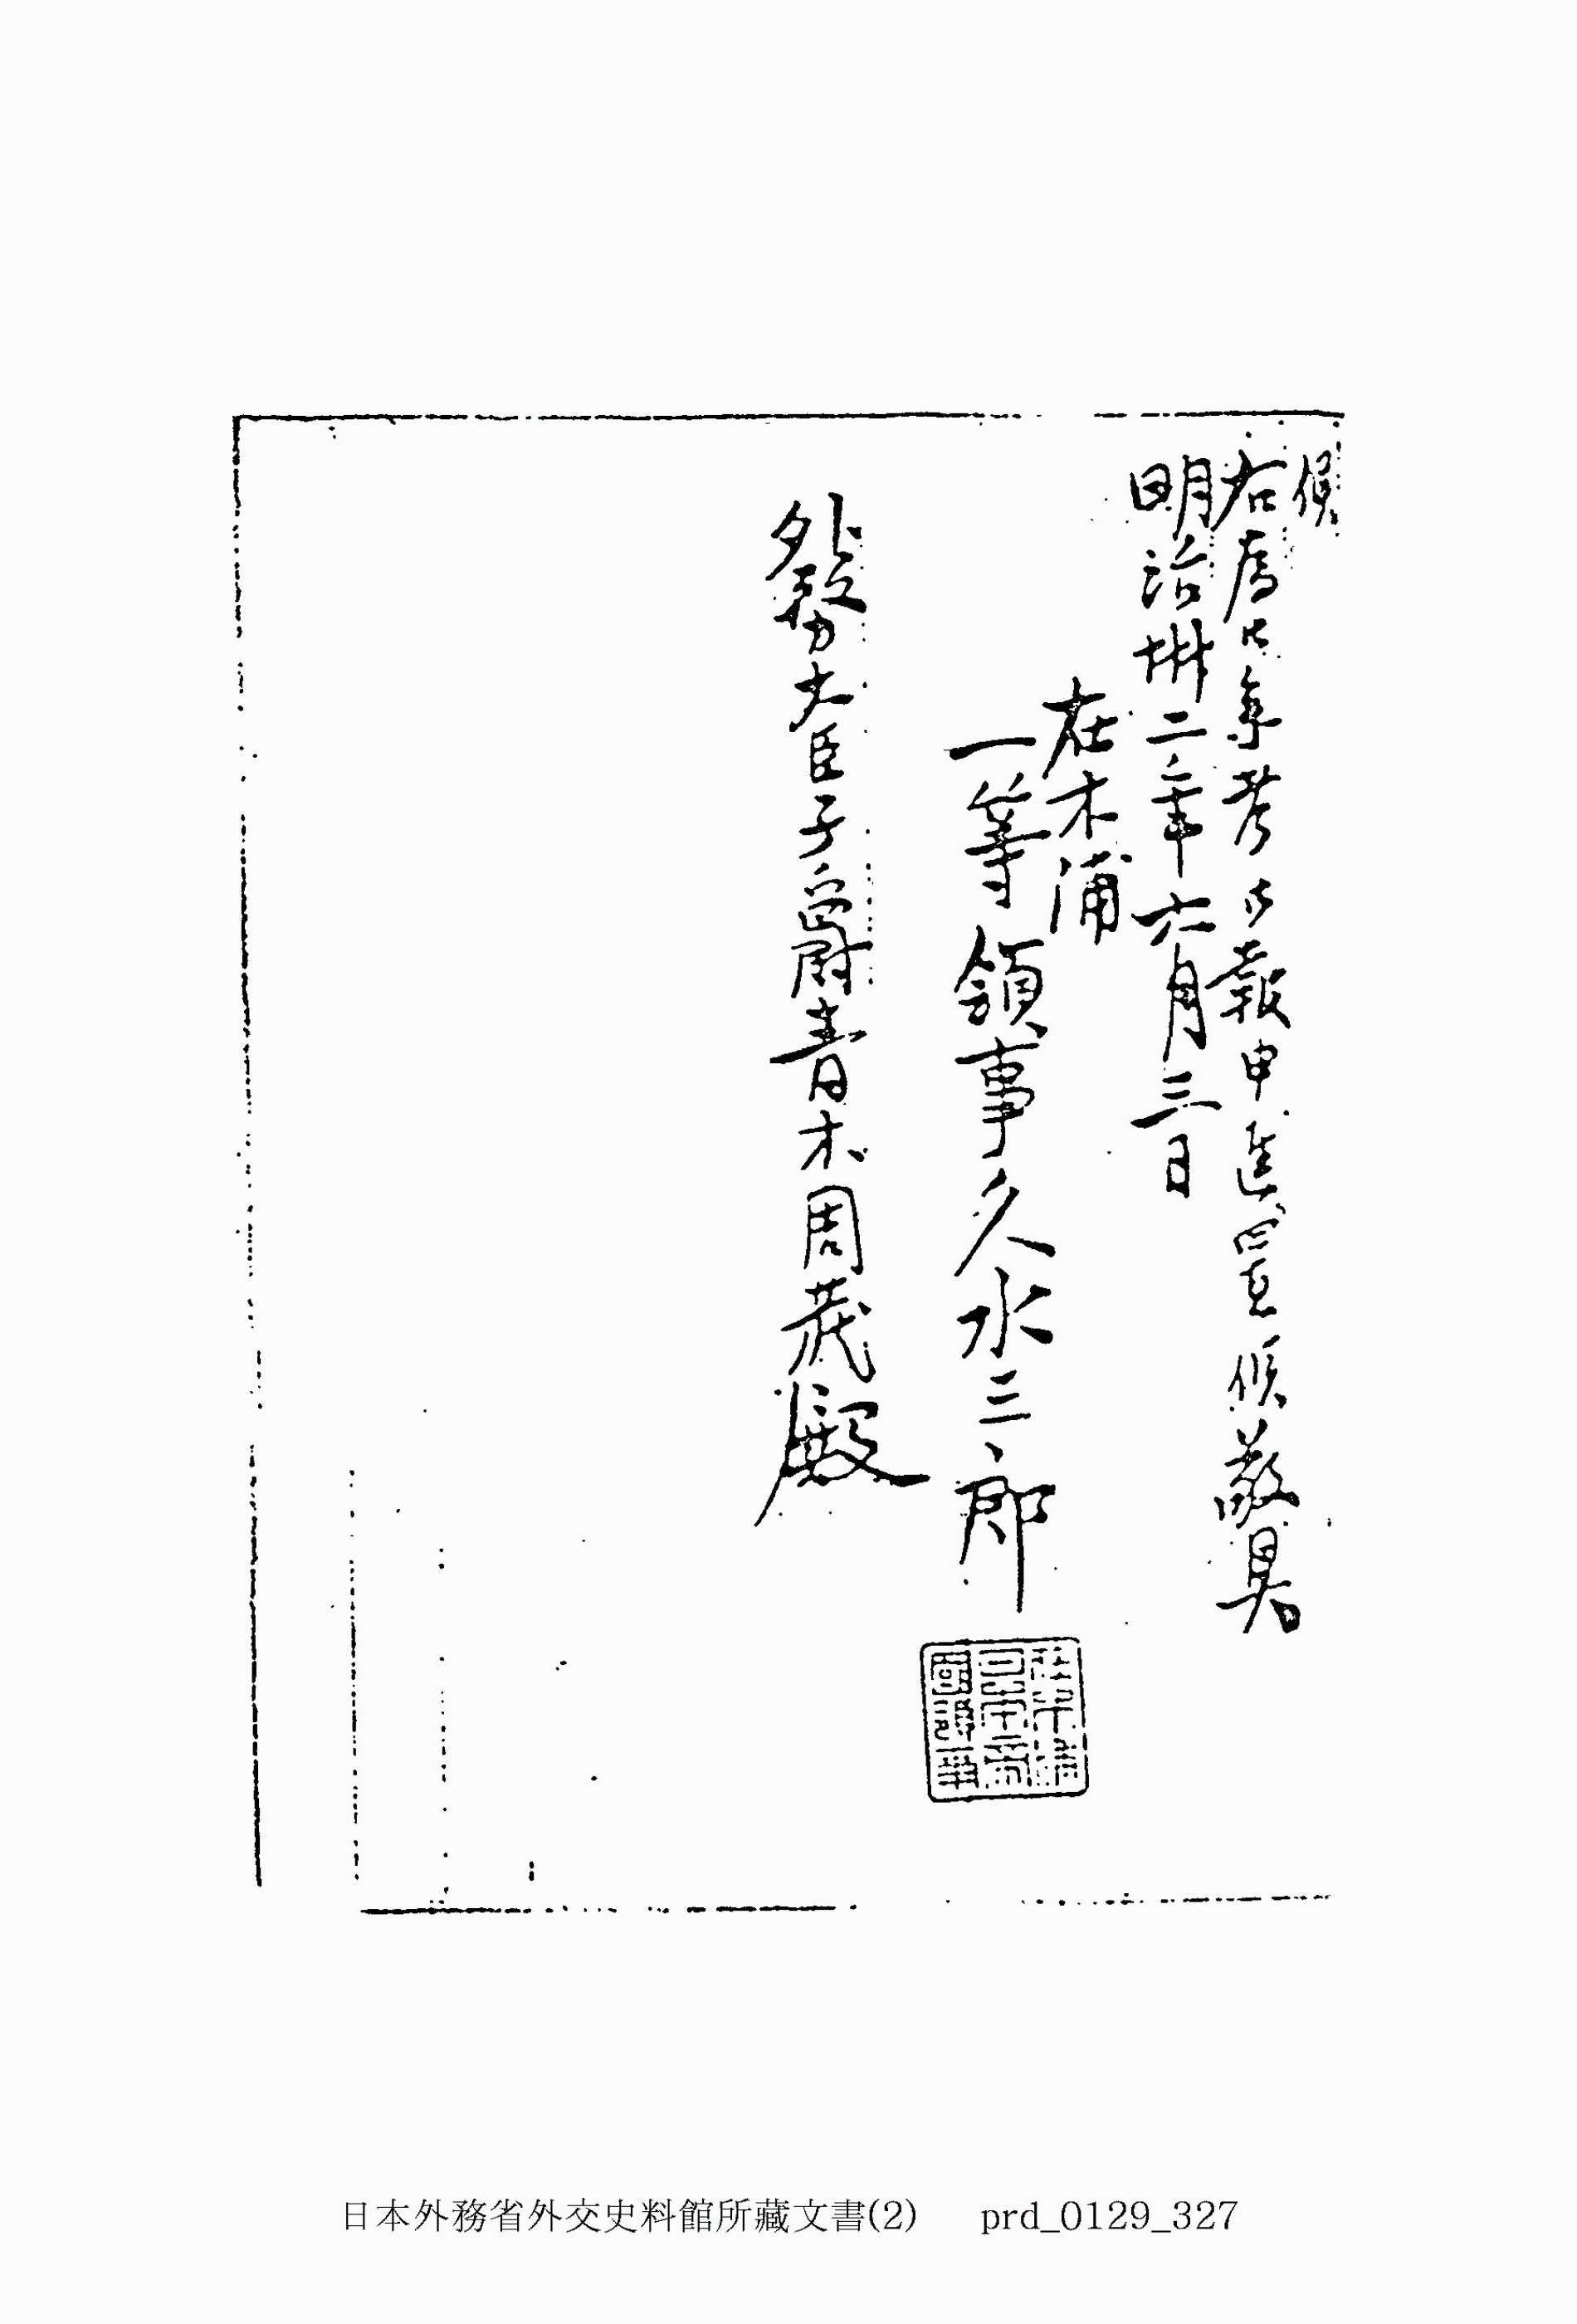 候
右為御参考御報申進置候敬具
明治卅二年六月三日
在木浦
一等領事久水三郎
外務大臣子爵青木周蔵殿
日本外務省外交史料館所藏文書(2) prd_0129_327